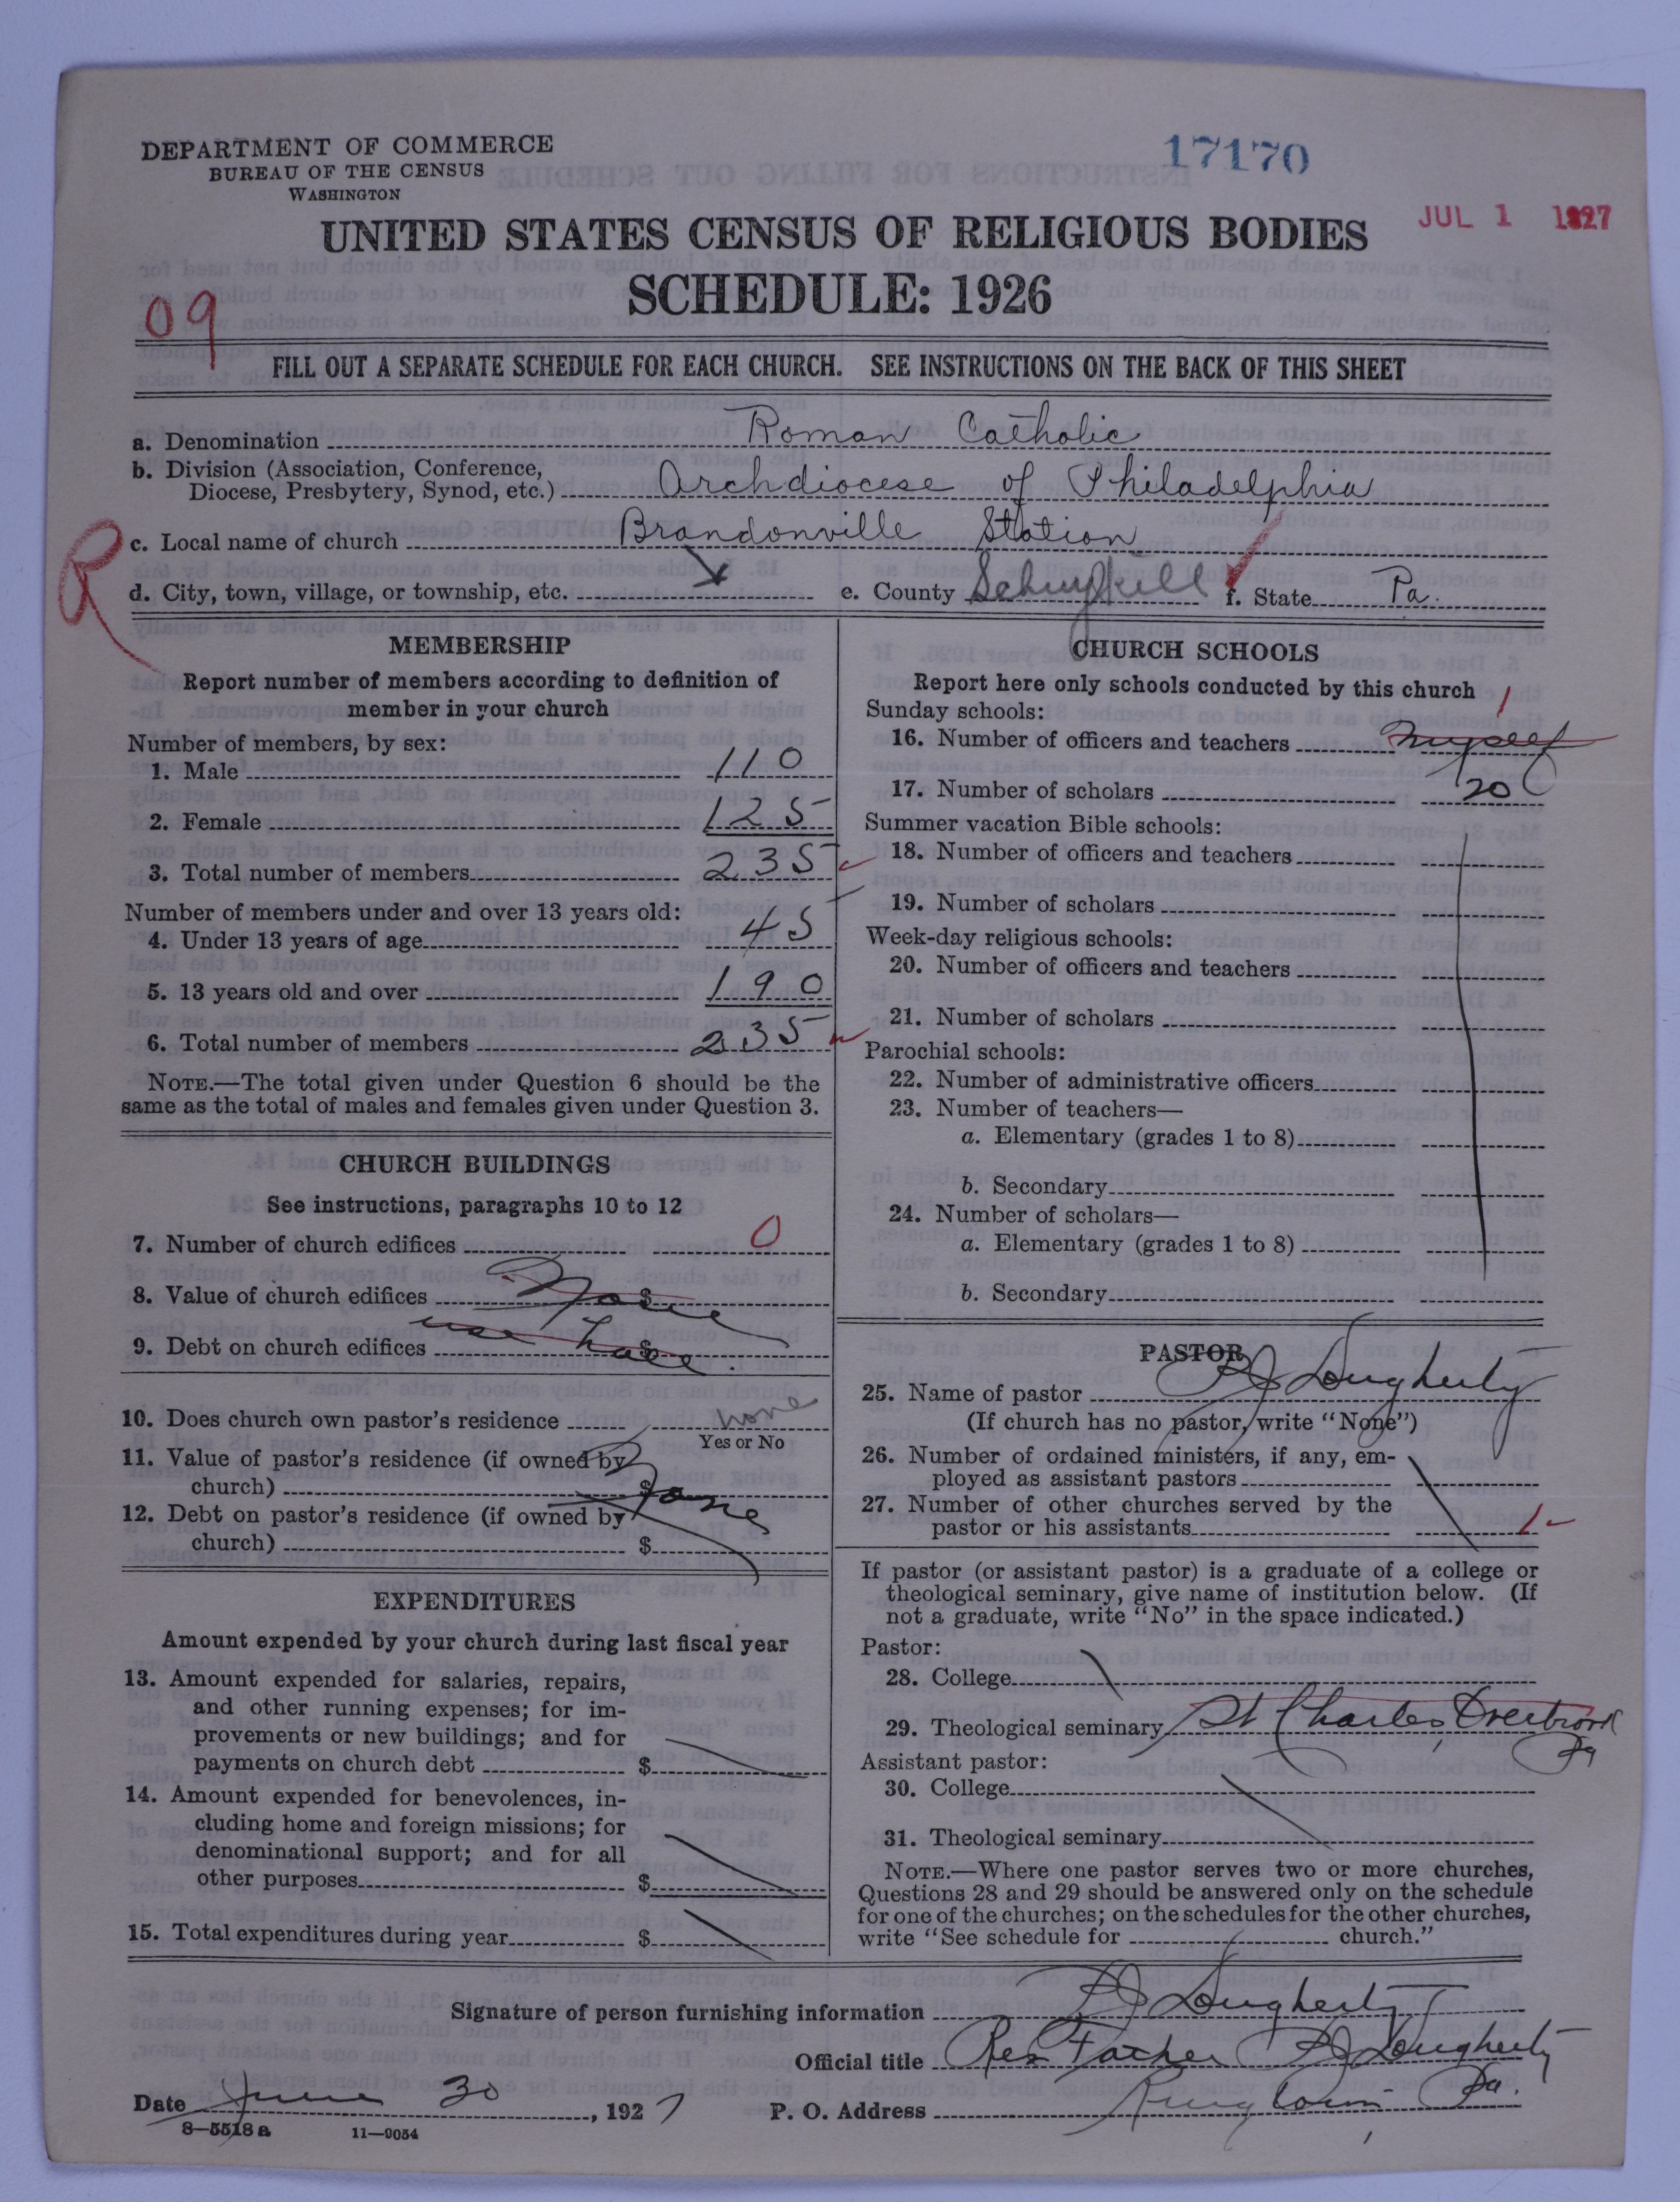 DEPARTMENT OF COMMERCE
BUREAU OF THE CENSUS
WASHINGTON
17170
UNITED STATES CENSUS OF RELIGIOUS BODIES
JUL 1 1927
SCHEDULE: 1926
09
FILL OUT A SEPARATE SCHEDULE FOR EACH CHURCH. SEE INSTRUCTIONS ON THE BACK OF THIS SHEET
a. Denomination Roman Catholic
b. Division (Association, Conference,
Diocese, Presbytery, Synod, etc.) Archdiocese of Philadelphia
R
c. Local name of church Brandonville Station
d. City, town, village, or township, etc. e. County Schuylkill f. State Pa.
MEMBERSHIP
Report number of members according to definition of
member in your church
Number of members, by sex:
1. Male 110
2. Female 125
3. Total number of members 235
Number of members under and over 13 years old:
4. Under 13 years of age 45
5. 13 years old and over 190
6. Total number of members 235
NOTE.—The total given under Question 6 should be the
same as the total of males and females given under Question 3.
CHURCH BUILDINGS
See instructions, paragraphs 10 to 12
7. Number of church edifices 0
8. Value of church edifices $ None
use hall.
9. Debt on church edifices $
10. Does church own pastor's residence none
Yes or No
11. Value of pastor's residence (if owned by
church) $ None
12. Debt on pastor's residence (if owned by
church) $
EXPENDITURES
Amount expended by your church during last fiscal year
13. Amount expended for salaries, repairs,
and other running expenses; for im-
provements or new buildings; and for
payments on church debt $
14. Amount expended for benevolences, in-
cluding home and foreign missions; for
denominational support; and for all
other purposes $
15. Total expenditures during year $
CHURCH SCHOOLS
Report here only schools conducted by this church
Sunday schools:
1
16. Number of officers and teachers myself
17. Number of scholars 20
Summer vacation Bible schools:
18. Number of officers and teachers
19. Number of scholars
Week-day religious schools:
20. Number of officers and teachers
21. Number of scholars
Parochial schools:
22. Number of administrative officers
23. Number of teachers—
a. Elementary (grades 1 to 8)
b. Secondary
24. Number of scholars—
a. Elementary (grades 1 to 8)
b. Secondary
PASTOR
25. Name of pastor Dougherty
(If church has no pastor, write "None")
26. Number of ordained ministers, if any, em-
ployed as assistant pastors
27. Number of other churches served by the
pastor or his assistants 1
If pastor (or assistant pastor) is a graduate of a college or
theological seminary, give name of institution below. (If
not a graduate, write "No" in the space indicated.)
Pastor:
28. College
29. Theological seminary St Charles, Overbrook
Pa
Assistant pastor:
30. College
31. Theological seminary
NOTE.—Where one pastor serves two or more churches,
Questions 28 and 29 should be answered only on the schedule
for one of the churches; on the schedules for the other churches,
write "See schedule for church."
Signature of person furnishing information Dougherty
Official title Rev Father Dougherty
Date June 30, 1927 P. O. Address Ringtown Pa.
8—5518a 11—9054